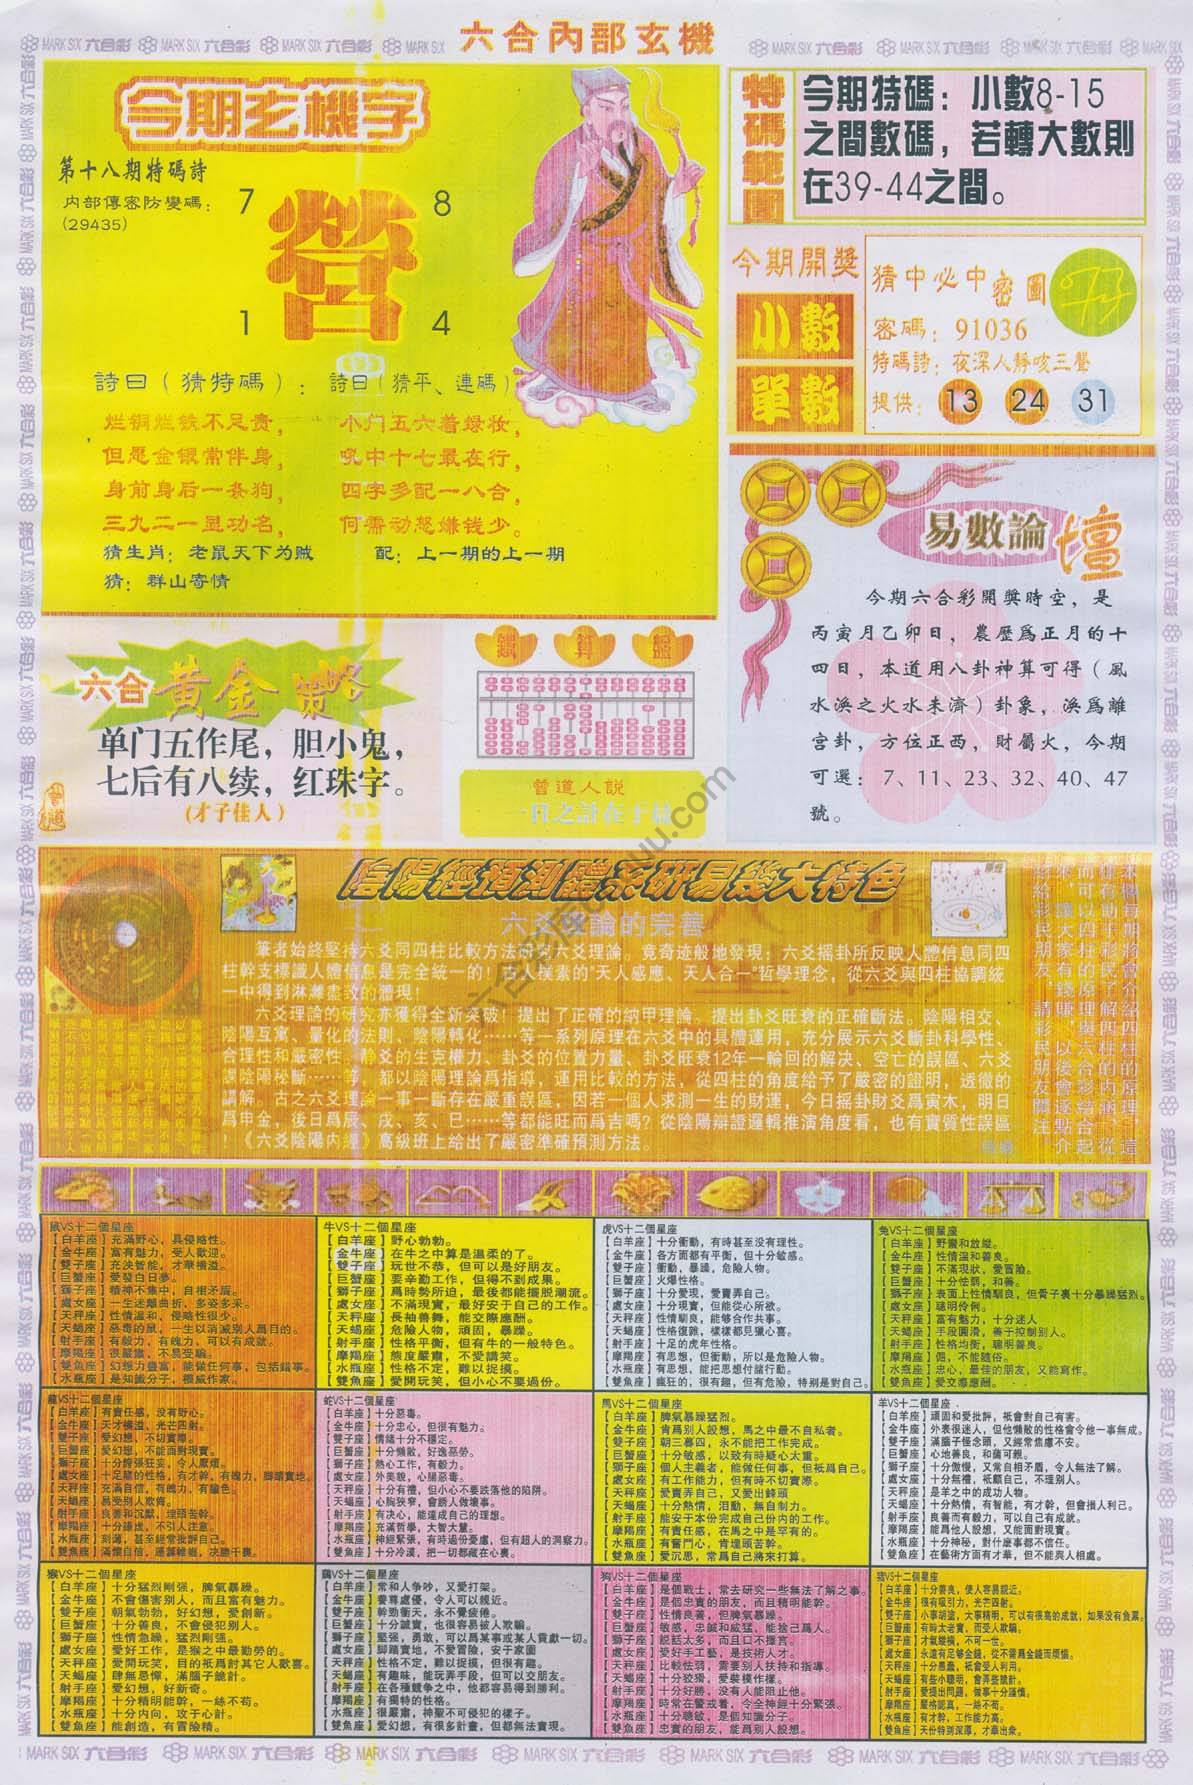 六合內部玄機
MARK SIX 六合彩
今期玄機字
第十八期特碼詩
内部傳密防變碼：
(29435)
7
8
營
1
4
詩曰（猜特碼）：
烂铜烂铁不足贵，
但愿金银常伴身，
身前身后一条狗，
三九二一显功名，
詩曰（猜平、連碼）
小门五六着绿妆，
吼中十七最在行，
四字多配一八合，
何需动怒嫌钱少。
猜生肖：老鼠天下为贼
配：上一期的上一期
猜：群山寄情
特碼範圍
今期特碼：小數8-15
之間數碼，若轉大數則
在39-44之間。
今期開獎
小數
單數
猜中必中密圖
密碼：91036
特碼詩：夜深人靜咳三聲
提供：13 24 31
易數論壇
今期六合彩開獎時空，是
丙寅月乙卯日，農歷爲正月的十
四日，本道用八卦神算可得（風
水渙之火水未濟）卦象，渙爲離
宫卦，方位正西，財屬火，今期
可選：7、11、23、32、40、47
號。
六合黄金策略
单门五作尾，胆小鬼，
七后有八续，红珠字。
(才子佳人)
曾道
鐵算盤
曾道人説
一日之計在于晨
陰陽經預測體系研易幾大特色
六爻理論的完善
筆者始終堅持六爻同四柱比較方法研究六爻理論。竟奇迹般地發現：六爻摇卦所反映人體信息同四
柱幹支標識人體信息是完全統一的！古人樸素的“天人感應、天人合一”哲學理念，從六爻與四柱協調統
一中得到淋灕盡致的體現！
六爻理論的研究亦獲得全新突破！提出了正確的納甲理論。提出卦爻旺衰的正確斷法。陰陽相交、
陰陽互寓、量化的法則、陰陽轉化……等一系列原理在六爻中的具體運用，充分展示六爻斷卦科學性、
合理性和嚴密性。静爻的生克權力、卦爻的位置力量、卦爻旺衰12年一輪回的解决、空亡的誤區、六爻
課陰陽秘斷……等，都以陰陽理論爲指導，運用比較的方法，從四柱的角度給予了嚴密的證明，透徹的
講解。古之六爻理論一事一斷存在嚴重誤區，因若一個人求測一生的財運，今日摇卦財爻爲寅木，明日
爲申金，後日爲辰、戌、亥、巳……等都能旺而爲吉嗎？從陰陽辯證邏輯推演角度看，也有實質性誤區
！《六爻陰陽内經》高級班上給出了嚴密準確預測方法。
本欄每期將會介紹四柱的原理，這
樣有助于彩民了解四柱的内涵，從
而可以四柱的原理與六合彩結合起
來，讓大家有錢賺，以後會逐點介
紹給彩民朋友，請彩民朋友關注。
鼠VS十二個星座
【白羊座】充滿野心，具侵略性。
【金牛座】富有魅力，受人歡迎。
【雙子座】充泱智能，才華橫溢。
【巨蟹座】愛發白日夢。
【獅子座】精神不集中，自相矛盾。
【處女座】一生迷離曲折、多姿多采。
【天秤座】性情溫和，侵略性很少。
【天蝎座】惡毒的鼠，一生以消滅别人爲目的。
【射手座】有毅力，有魄力，可以有成就。
【摩羯座】很嚴肅，不易受騙。
【雙魚座】幻想力豐富，能做任何事，包括錯事。
【水瓶座】是知識分子，權威作家。
牛VS十二個星座
【白羊座】野心勃勃。
【金牛座】在牛之中算是溫柔的了。
【雙子座】玩世不恭，但可以是好朋友。
【巨蟹座】要辛勤工作，但得不到成果。
【獅子座】爲時勢所迫，最後都能擺脱潮流。
【處女座】不滿現實，最好安于自己的工作。
【天秤座】長袖善舞，能交際應酬。
【天蝎座】危險人物，頑固，暴躁。
【射手座】性格平衡，但有牛的一般特色。
【摩羯座】態度嚴肅，不愛講笑。
【水瓶座】性格不定，難以捉摸。
【雙魚座】愛開玩笑，但小心不要過份。
虎VS十二個星座
【白羊座】十分衝動，有時甚至没有理性。
【金牛座】各方面都有平衡，但十分敏感。
【雙子座】衝動，暴躁，危險人物。
【巨蟹座】火爆性格。
【獅子座】十分愛現，愛賣弄自己。
【處女座】十分現實，但能從心所欲。
【天秤座】性情馴良，能够合作共事。
【天蝎座】性格復雜，樣樣都見獵心喜。
【射手座】十足的虎年性格。
【摩羯座】有思想，但衝動，所以是危險人物。
【水瓶座】有思想，能把思想付儲行動。
【雙魚座】瘋狂的，很有趣，但有危險，特别是對自己。
兔VS十二個星座
【白羊座】野蠻和放縱。
【金牛座】性情溫和善良。
【雙子座】不滿現狀，愛冒險。
【巨蟹座】十分怯弱，和善。
【獅子座】表面上性情馴良，但骨子裏十分暴躁猛烈。
【處女座】聰明伶俐。
【天秤座】富有魅力，十分迷人
【天蝎座】手段圓滑，善于控制别人。
【射手座】性格均衡，聰明善良。
【摩羯座】倔，不能隨俗。
【水瓶座】忠心，最佳的朋友，又能寫作。
【雙魚座】愛交際應酬。
龍VS十二個星座
【白羊座】有責任感，没有野心。
【金牛座】天才橫溢，光芒四射。
【雙子座】愛幻想，不切實際。
【巨蟹座】愛幻想，不能面對現實。
【獅子座】十分誇張狂妄，令人厭煩。
【處女座】十足龍的性格，有才幹，有魄力，脚踏實地。
【天秤座】充滿自信，有魄力，有膽色。
【天蝎座】易受别人欺侮。
【射手座】良善和沉默，埋頭苦幹。
【摩羯座】十分謙虚，不引人注意。
【水瓶座】刻薄，甚至經常批評自己。
【雙魚座】滿懷自信，運籌帷幄，决勝千里。
蛇VS十二個星座
【白羊座】十分惡毒。
【金牛座】十分忠心，但很有魅力。
【雙子座】情緒十分不穩定。
【巨蟹座】十分懶散，好逸惡勞。
【獅子座】熱心工作，有毅力。
【處女座】外美貌，心腸惡毒。
【天秤座】十分有禮，但小心不要跌落他的陷阱。
【天蝎座】心胸狹窄，會誘人做壞事。
【射手座】有决心，能達成自己的理想。
【摩羯座】充滿哲學，大智大量。
【水瓶座】神經緊張，有時過份憂慮，但有超人的洞察力。
【雙魚座】十分冷漠，把一切都藏在心裏。
馬VS十二個星座
【白羊座】脾氣暴躁猛烈。
【金牛座】肯爲别人設想，馬之中最不自私者。
【雙子座】朝三暮四，永不能把工作完成。
【巨蟹座】十分敏感，以致有時疑心太重。
【獅子座】個人主義者，能做任何事，但衹爲自己。
【處女座】有工作能力，但有時不切實際。
【天秤座】愛賣弄自己，又愛出鋒頭
【天蝎座】十分熱情，沮動，無自制力。
【射手座】能安于本份完成自己份内的工作。
【摩羯座】有責任感，在馬之中是罕有的。
【水瓶座】有奮鬥心，肯埋頭苦幹。
【雙魚座】愛沉思，常爲自己將來打算。
羊VS十二個星座
【白羊座】頑固和愛批評，衹會對自己有害。
【金牛座】外表很迷人，但他懶散的性格會令他一事無成。
【雙子座】滿腦子怪念頭，又經常焦慮不安。
【巨蟹座】心地善良，和藹可親。
【獅子座】十分傲慢，又常自相矛盾，令人無法了解。
【處女座】十分無禮，衹顧自己，不理别人。
【天秤座】是羊之中的成功人物。
【天蝎座】十分熱情，有智能，有才幹，但會損人利己。
【射手座】良善而有毅力，可以自己有成就。
【摩羯座】能爲他人設想，又能面對現實。
【水瓶座】十分神秘，對什麽事都不信任。
【雙魚座】在藝術方面有才華，但不能與人相處。
猴VS十二個星座
【白羊座】十分猛烈剛强，脾氣暴躁。
【金牛座】不會傷害别人，而且富有魅力。
【雙子座】朝氣勃勃，好幻想，愛創新。
【巨蟹座】十分善良，不會侵犯别人。
【獅子座】性情急躁，猛烈剛强。
【處女座】愛好工作，是猴之中最勤勞的。
【天秤座】愛開玩笑，目的衹爲討其它人歡喜。
【天蝎座】肆無忌憚，滿腦子詭計。
【射手座】愛幻想，好新奇。
【摩羯座】十分精明能幹，一絲不苟。
【水瓶座】十分内向，攻于心計。
【雙魚座】能創造，有冒險精。
鷄VS十二個星座
【白羊座】常和人争吵，又愛打架。
【金牛座】養尊處優，令人可以親近。
【雙子座】幹勁衝天，永不覺疲倦。
【巨蟹座】十分誠實，也很容易被人欺騙。
【獅子座】堅强，勇敢，可以爲某事或某人貢獻一切。
【處女座】脚踏實地，不愛冒險，安于家園
【天秤座】性格不定，難以捉摸，但很有趣。
【天蝎座】有趣味，能玩弄手段，但可以交朋友。
【射手座】在各種競争之中，他都容易得到勝利。
【摩羯座】有獨特的性格。
【水瓶座】很嚴肅，神聖不可侵犯的樣子。
【雙魚座】愛幻想，有很多計畫，但都無法實現。
狗VS十二個星座
【白羊座】是個戰士，常去研究一些無法了解之事。
【金牛座】是個忠實的朋友，而且精明能幹。
【雙子座】性情良善，但脾氣暴躁。
【巨蟹座】敏感，忠誠和威猛，能捨己爲人。
【獅子座】説話太多，而且口不擇言。
【處女座】愛好手工藝，是技術人才。
【天秤座】比較怯弱，需要别人扶持和指導。
【天蝎座】十分狡猾，愛裝模作樣。
【射手座】十分好勝，没有人能阻止他。
【摩羯座】時常在警戒着，令全神經十分緊張。
【水瓶座】十分聰敏，是個知識分子。
【雙魚座】忠實的朋友，能爲别人設想。
猪VS十二個星座
【白羊座】十分善良，使人容易親近。
【金牛座】很有吸引力，光芒四射。
【雙子座】小事胡塗，大事精明，可以有很高的成就，如果没有負累。
【巨蟹座】有時太老實，而受人欺騙。
【獅子座】才氣縱橫，不可一世。
【處女座】永遠有足够金錢，從不需爲金錢而煩惱。
【天秤座】十分愚蠢，衹會受人利用。
【天蝎座】有些小聰明，會弄些詭計。
【射手座】愛提出問題，做事十分謹慎。
【摩羯座】嚴格認真，一絲不苟。
【水瓶座】有才幹，工作能力高。
【雙魚座】天份特别深厚，才華出衆。
MARK SIX 六合彩